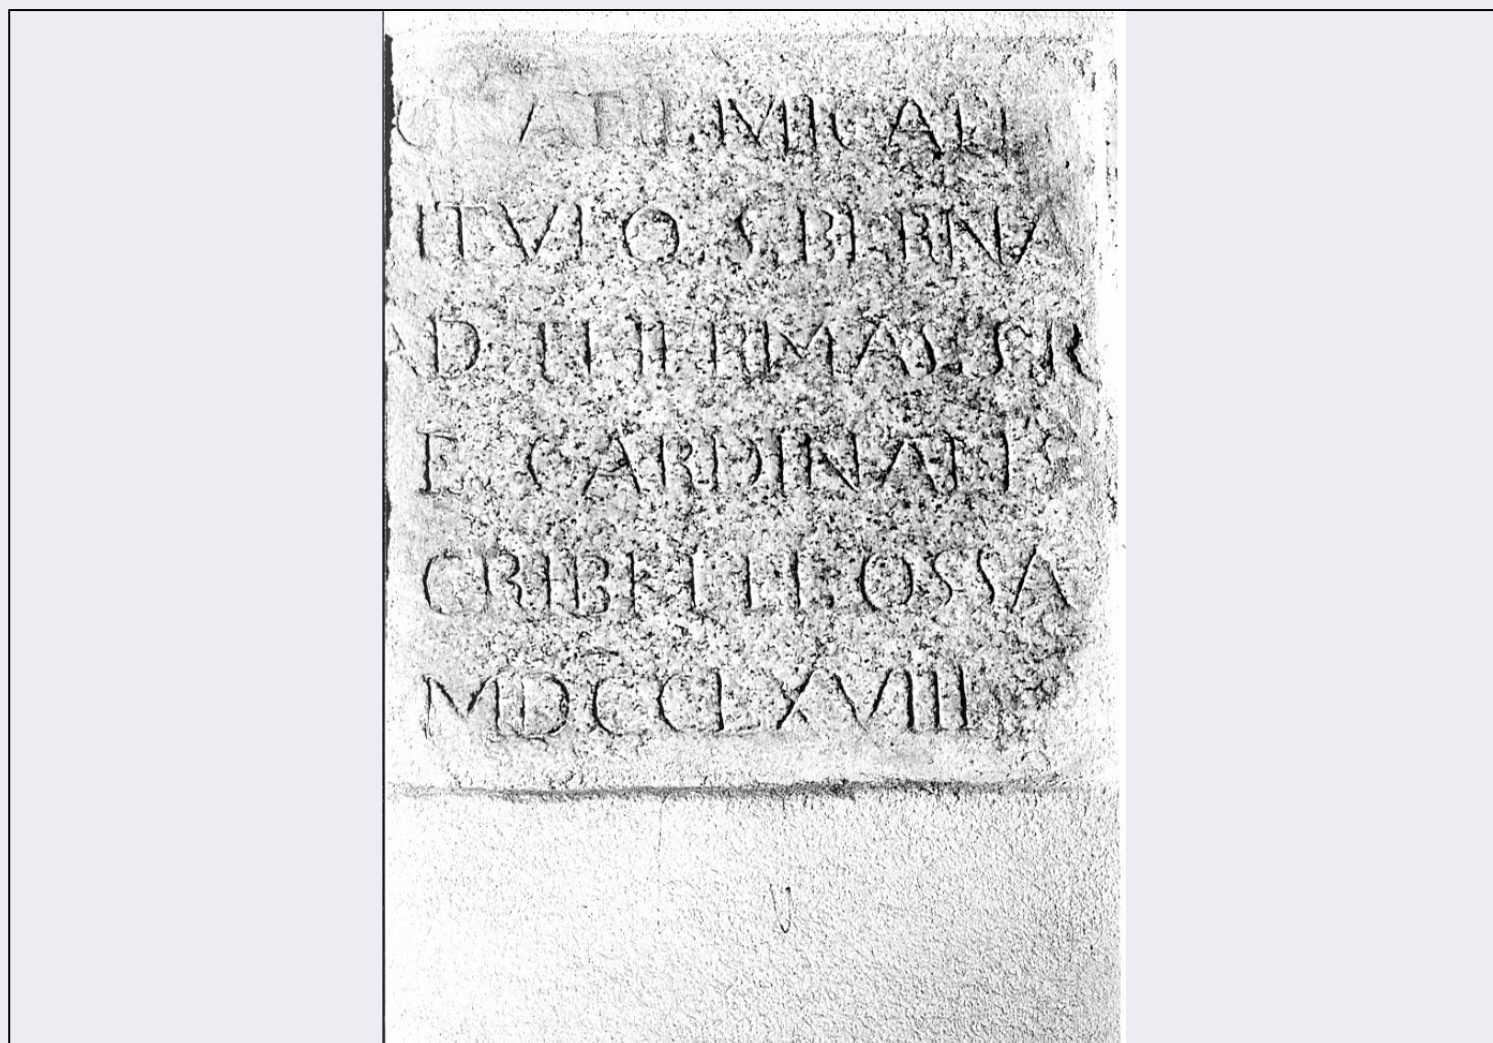 MICALI
ITVLO . S . BERNA
AD THERMAS . S.R
E . CARDINALIS
CRIBELLI . OSSA
MDCCLXVIII